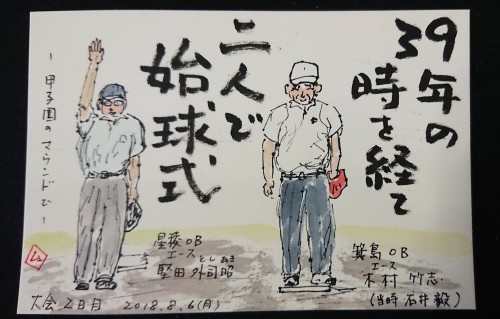 39年の
時を経て
二人で
始球式
－甲子園のマウンドで－
星稜OB
エース
としあき
堅田外司昭
箕島OB
エース
木村竹志
(当時 石井毅)
大会2日目 2018.8.6(月)